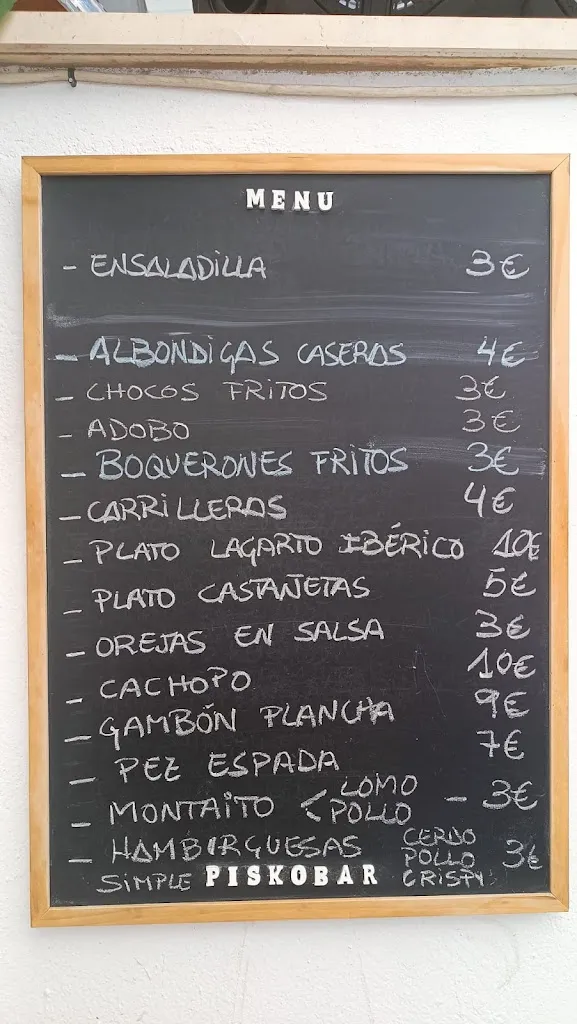 MENU
- ENSALADILLA 3€
- ALBONDIGAS CASERAS 4€
- CHOCOS FRITOS 3€
- ADOBO 3€
- BOQUERONES FRITOS 3€
- CARRILLERAS 4€
- PLATO LAGARTO IBÉRICO 10€
- PLATO CASTAÑETAS 5€
- OREJAS EN SALSA 3€
- CACHOPO 10€
- GAMBÓN PLANCHA 9€
- PEZ ESPADA 7€
- MONTAITO < LOMO POLLO - 3€
- HAMBURGUESAS CERDO POLLO CRISPY 3€
SIMPLE PISKOBAR